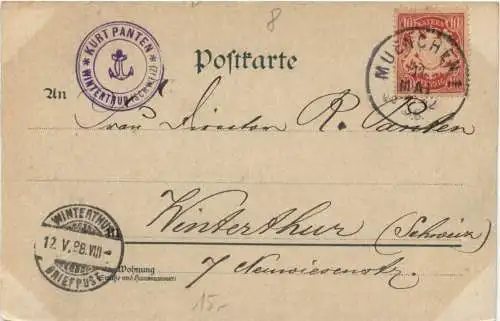 8
* KURT PANTEN *
WINTERTHUR (SCHWEIZ)
Postkarte
10 BAYERN 10
MUENCHEN
An
Frau Director R. Panten
WINTERTHUR
12. V. 98. VIII
BRIEFPOST
Winterthur (Schweiz)
Wohnung
(Straße und Hausnummer)
7 Neuwiesenstr.
15.-